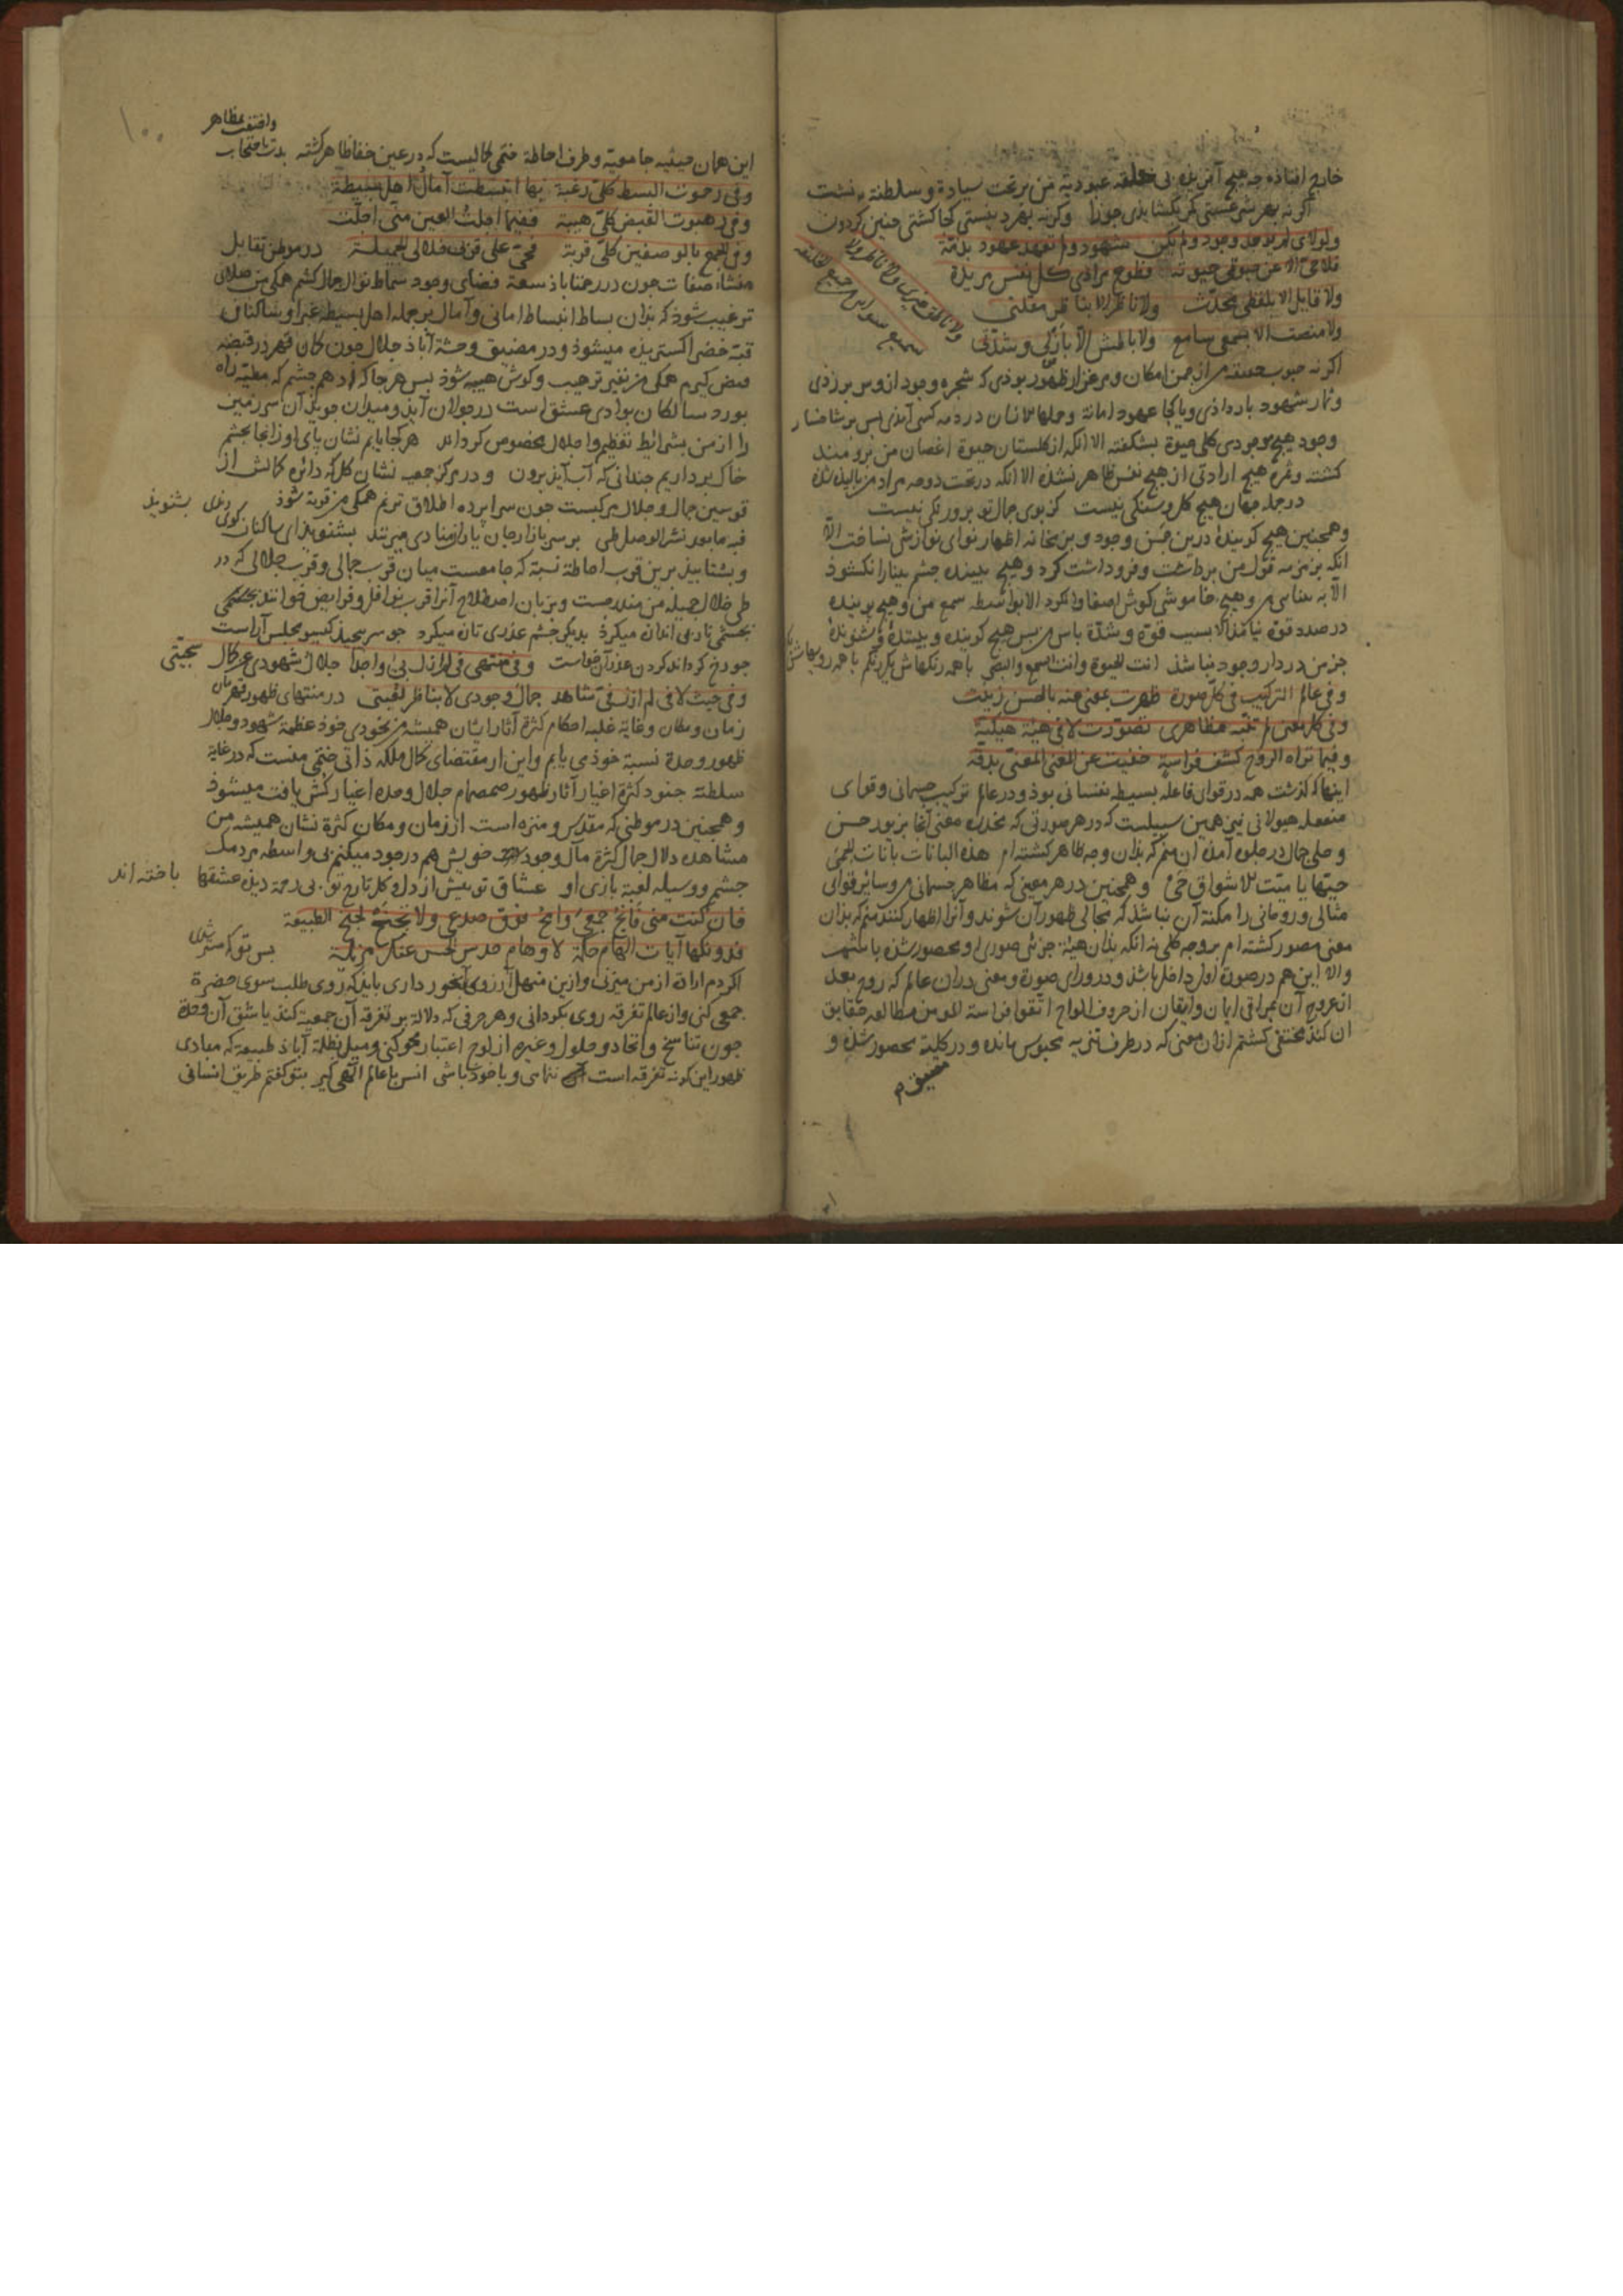 خارج افتاذه جه هیج آفریذه بی حلقه عبودیة من بر تخت سیادة و سلطنة ننشست
اکرنه بهر شرعستی کر بکشایذی جوزا وکرنه بهر دینستی کجا کشتی جنین کردون
ولولای لم یوجد وجود ولم یکن شهود ولم تعهد عهود بذمة
فلا حی الا عن حیوتی حیوته وطوع مرادی کل نفس مریدة
ولا قایل الا بلفظی محدث ولا ناظر الا بناظر مقلتی
ولا منصت الا بسمعی سامع ولا باطش الا بازلی وشدتی
ولا ناطق غیری ولا ناظر ولا
سمیع سوائی من جمیع الخلیقة
اکرنه حبوب حقیقة من از جمن امکان و مرغزار ظهور بوذی که شجره وجود از وی سر برزذی
وثمار شهود بار داذی ویا کجا عهود امانة
وجود هیج موجودی کلی حیوة بشکفته الا انکه از کلستان حیوة اغصان من برومند
کشته وثمره هیج ارادتی از هیج نفس ظاهر نشذه الا انکه درتحت دوحه مراد من بالیذه شذه
در جمله جهان هیج کل وسنکی نیست کز بوی جمال تو برو رنکی نیست
وهمجنین هیج کویندهٔ درین جمن وجود وبزمخانه اظهار نوای نوازش نساخت الا
انکه بزمزمه قول من برداشت وفرو داشت کرد وهیج بیننده جشم بینا را نکشوذ
الا به بیناس من وهیج خاموشی کوش اصغا وا نکرد الا بواسطه سمع من وهیج برینده
در صدد قوة نیامذ الا بسبب قوة وشدة باس من بس هیج کوینده وبیننده وشنونده
جز من در دار وجود نباشذ انت الحیوة وانت السمع والبصر با همه رنکهاش یکرنکم با همه رویهاش
وفی عالم الترکیب فی کل صورة ظهرت بمعنی عنه بالحسن زینت
وفی کل معنی لم تبنه مظاهری تصورت لا فی هیئة هیکلیة
وفیما تراه الروح کشف فراسة خفیت عن المعنی المعنی بدقة
اینها که کذشت همه در قوای فاعله بسیطه نفسانی بوذ ودر عالم ترکیب جسمانی وقوای
منفعله هیولانی نیز همین سبیلست که در هر صورتی که مخدره معنی آنجا بزیور حسن
وحلی جمال در جلوه آمذه آن منم که بذان وجه ظاهر کشته ام هذه البانات بانات الحمی
حیها یا میت للاشواق حی وهمجنین در هر معنی که مظاهر جسمانی من وسایر قوای
مثالی وروحانی را مکنة آن نباشذ که مجالی ظهور آن شوند وآنرا اظهار کنند منم که بذان
معنی مصور کشته ام بر وجه کلی نه انکه بذان هیئة جزئی صوری او محصور شذه باشم
والا این هم در صورة اول داخل باشذ ودر ورای صورة ومعنی در ان عالم که روح بعد
از عروج آن بمراقی ایمان وایقان از حروف الواح اتقوا فراسة المومن مطالعه حقایق
ان کند مختفی کشتم ازان معنی که در طرف تنزیه محبوس مانده ودر کلیة محصور شذه و
مضیق
۱۰۰
واختفت بمظاهر
این همان حیثیه جامعیة وطرف احاطة ختمی کمالیست که در عین خفا ظاهر کشته بدت باحتجاب
وفی رحموت البسط کلی رغبة بها انبسطت آمال اهل بسیطة
وفی رهبوت القبض کلی هیبة ففیما اجلت العین منی اجلت
وفی الجمع بالوصفین کلی قربة فحی علی قربی خلالی الجمیلة در موطن تقابل
منشاء صفات جون در رحمتاباذ سعة فضای وجود سماط نوال جمال کشم همکی من صلای
ترغیب شوذ که بذان بساط انبساط امانی وآمال بر جمله اهل بسیطه غبرا وساکنان
قبة خضرا کسترینده میشوذ ودر مضیق وحشة آباذ جلال جون کمان قهر در قبضه
قبض کیرم همکی من نفیر ترهیب وکوش هیبه شوذ بس هرجا که
بورد سالکان بوادی عشق است در جولان آیذ ومیدان جویذ آن سرزمین
را از من بشرایط تعظیم واجلال مخصوص کرداند هر کجا یابم نشان پای او زانجا بجشم
خاک بردارم جندانی که آب آیذ برون ودر مرکز جمعیه نشان کل که دائره کمالش از
قوسین جمال وجلال مرکبست جون سراپرده اطلاق ترنم همکی من قربة شوذ بشنویذ
بر سر بازار جان یاران منادی میزنند بشنویذ ای ساکنان کوی
وبشتابیذ برین قرب احاطة نسبة که جامعست میان قرب جمالی وقرب جلالی که در
طی خلال جمیله من مندرجست وبزبان اصطلاح آنرا قرب نوافل وفرایض خوانند
بجشمی ناز بی اندازه میکرد بدیکر جشم عذری تازه میکرد جو سر بیجذ کیسو مجلس آراست
جو رخ کرداند کردن عذر آن خواست وفی منتهی فی لم ازل بی واجدا جلال شهودی عن کمال سجیتی
وفی حیث لا فی لم ازل فی شاهدا جمال وجودی لا بناظر مقلتی در منتهای ظهور قهرمان
زمان ومکان وغایة غلبه احکام کثرة آثار ایشان همیشه من بخودی خوذ عظمة شهود وجلال
ظهور وحدة نسبة خوذ می یابم واین از مقتضای کمال ملکه ذاتی ختمی منست که در غایة
سلطنة جنود کثرة اغیار آثار ظهور صمصام جلال وحده اغیار کش یافت میشوذ
وهمجنین در موطنی که مقدس ومنزه است از زمان ومکان کثرة نشان همیشه من
مشاهده دلال جمال کثرة مآل وجود خویش هم در خود میکنم بی واسطه مردمک
جشم ووسیله لعبة بازی او عشاق تو بیش از دل وکل تارخ تو بی زحمة دیذه عشقها باخته اند
فان کنت منی فانح جمعی وامح فرق صدعی ولا تجنح لجنح الطبیعة
فدونکها آیات الهام حکمة لاوهام حدس الحس عنک مزیلة بس تو که
اکر دم ارادة از من میزنی وازین منهل آرزوی آبخور داری بایذ که روی طلب سوی حضرة
جمعی کنی واز عالم تفرقه روی بکردانی وهر حرفی که دلالة بر تفرقه آن جمعیة کند یا شق آن وحدة
جون تناسخ واتحاد وحلول وغیره از لوح اعتبار محو کنی ومیل بظلمة آباذ طبیعة که مبادی
ظهور این کونه تفرقه است ننمای وبا خوذ باشی انس با عالم الهی کیر بتو کفتم طریق انسانی